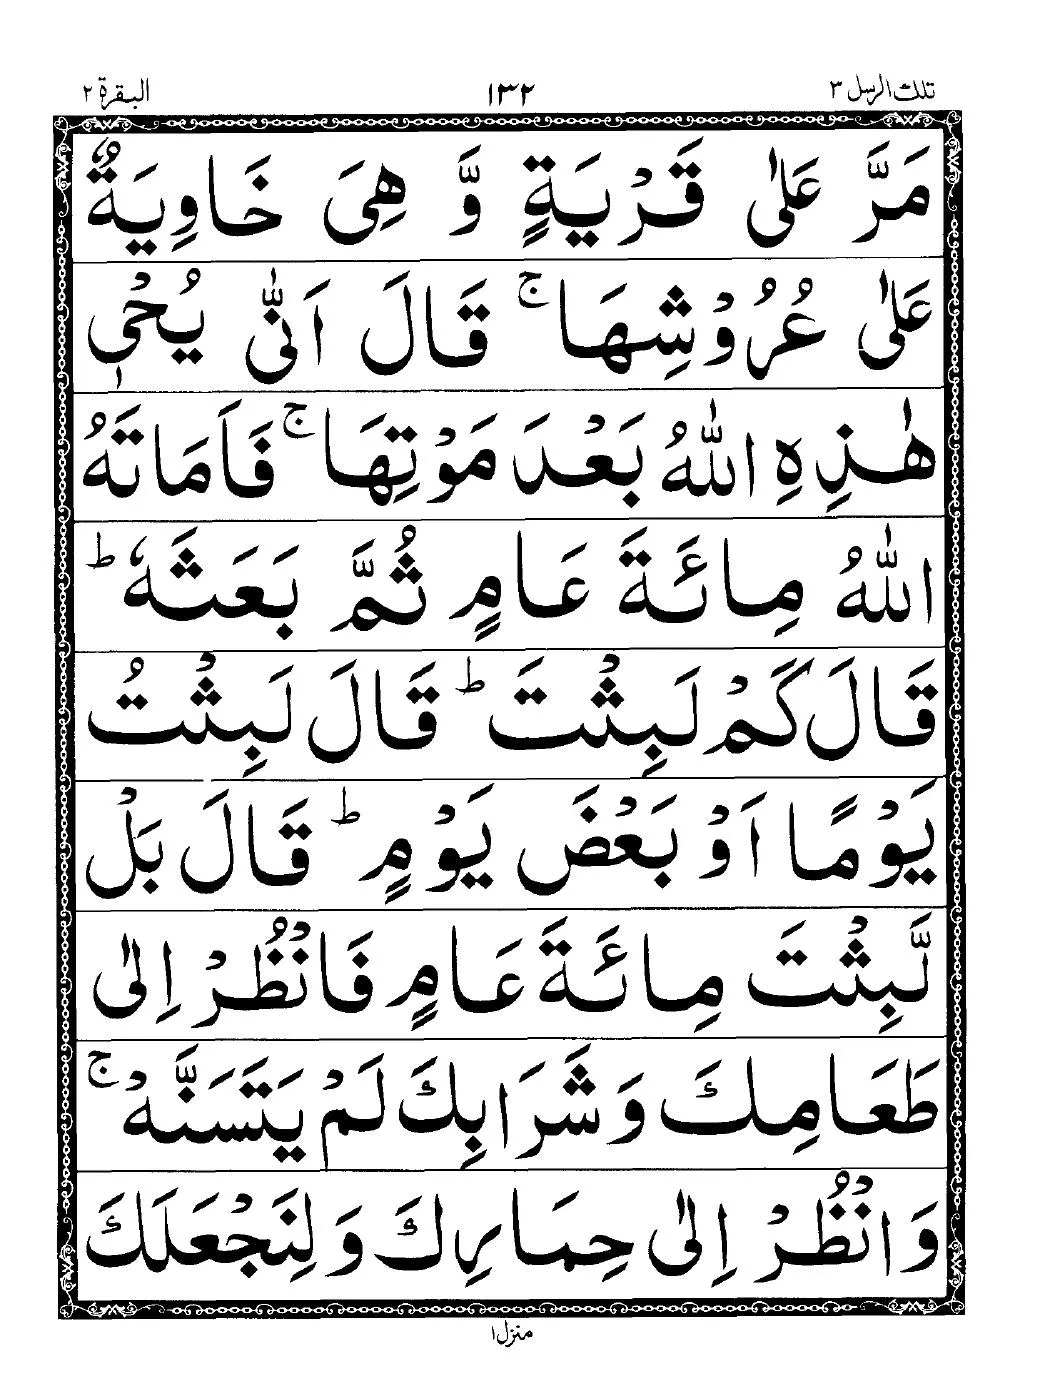 تلك الرسل ٣
١٣٢
البقرة ٢
مَرَّ عَلٰى قَرْيَةٍ وَّ هِيَ خَاوِيَةٌ
عَلٰى عُرُوْشِهَا ۚ قَالَ اَنّٰى يُحْيٖ
هٰذِهِ اللّٰهُ بَعْدَ مَوْتِهَا ۚ فَاَمَاتَهُ
اللّٰهُ مِائَةَ عَامٍ ثُمَّ بَعَثَهٗ ؕ
قَالَ كَمْ لَبِثْتَ ؕ قَالَ لَبِثْتُ
يَوْمًا اَوْ بَعْضَ يَوْمٍ ؕ قَالَ بَلْ
لَّبِثْتَ مِائَةَ عَامٍ فَانْظُرْ اِلٰى
طَعَامِكَ وَ شَرَابِكَ لَمْ يَتَسَنَّهْ ۚ
وَ انْظُرْ اِلٰى حِمَارِكَ وَ لِنَجْعَلَكَ
منزل ١